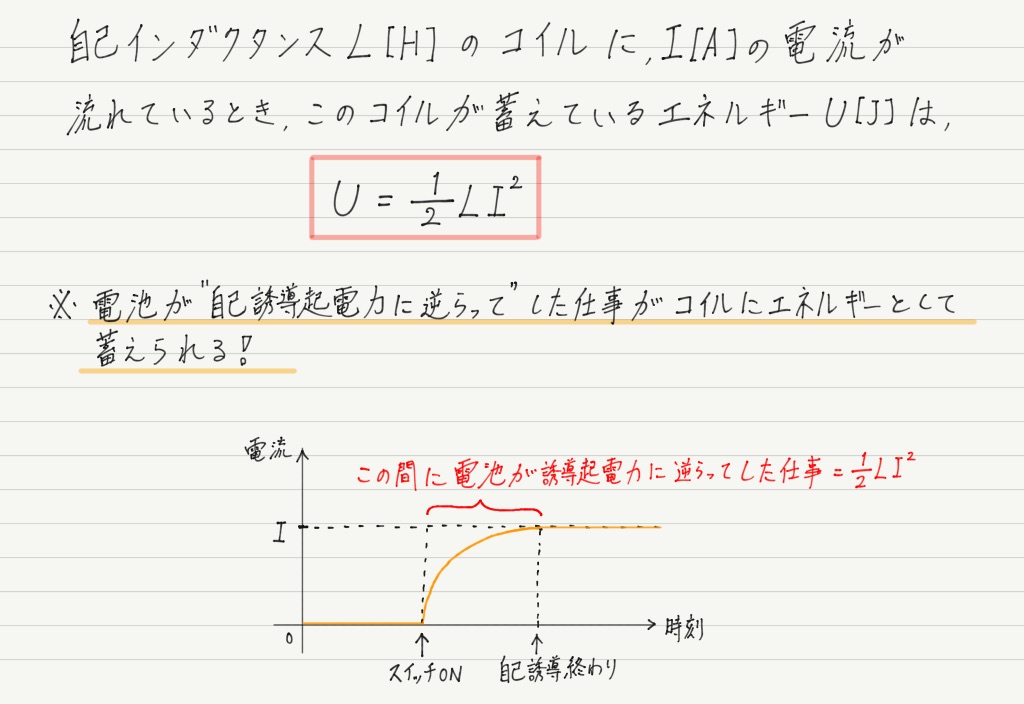 自己インダクタンスL[H]のコイルに,I[A]の電流が
流れているとき,このコイルが蓄えているエネルギーU[J]は,
U = 1/2 LI²
※ 電池が"自己誘導起電力に逆らって"した仕事がコイルにエネルギーとして
蓄えられる!
電流
この間に電池が誘導起電力に逆らってした仕事 = 1/2 LI²
I
0
時刻
スイッチON
自己誘導終わり